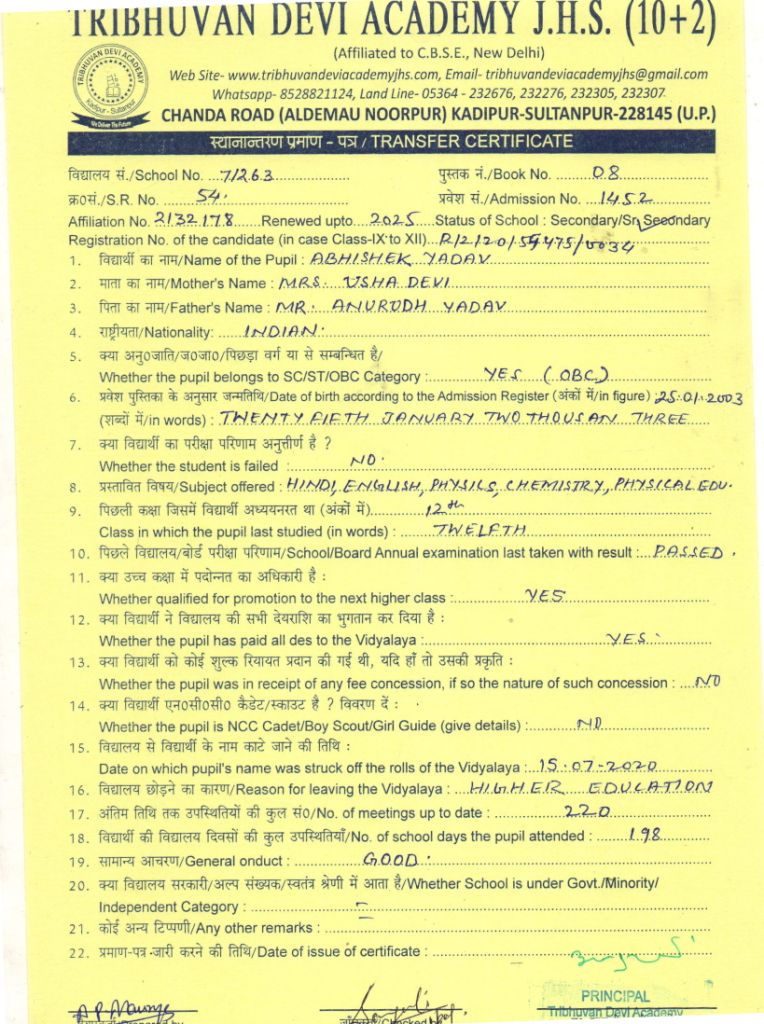 TRIBHUVAN DEVI ACADEMY J.H.S. (10+2)
(Affiliated to C.B.S.E., New Delhi)
TRIBHUVAN DEVI ACADEMY
Kadipur - Sultanpur
We Deliver The Future
Web Site- www.tribhuvandeviacademyjhs.com, Email- tribhuvandeviacademyjhs@gmail.com
Whatsapp- 8528821124, Land Line- 05364 - 232676, 232276, 232305, 232307
CHANDA ROAD (ALDEMAU NOORPUR) KADIPUR-SULTANPUR-228145 (U.P.)
स्थानान्तरण प्रमाण - पत्र / TRANSFER CERTIFICATE
विद्यालय सं./School No. 71263 पुस्तक नं./Book No. 08
क्र०सं./S.R. No. 54. प्रवेश सं./Admission No. 1452
Affiliation No. 2132178 Renewed upto 2025 Status of School : Secondary/Sr. Secondary
Registration No. of the candidate (in case Class-IX to XII) R/2/20/59475/0034
1. विद्यार्थी का नाम/Name of the Pupil : ABHISHEK YADAV
2. माता का नाम/Mother's Name : MRS. USHA DEVI
3. पिता का नाम/Father's Name : MR. ANURUDH YADAV
4. राष्ट्रीयता/Nationality: INDIAN.
5. क्या अनु०जाति/ज०जा०/पिछड़ा वर्ग या से सम्बन्धित है/
Whether the pupil belongs to SC/ST/OBC Category : YES (OBC)
6. प्रवेश पुस्तिका के अनुसार जन्मतिथि/Date of birth according to the Admission Register (अंकों में/in figure) : 25.01.2003
(शब्दों में/in words) : TWENTY FIFTH JANUARY TWO THOUSAN THREE
7. क्या विद्यार्थी का परीक्षा परिणाम अनुत्तीर्ण है ?
Whether the student is failed : NO.
8. प्रस्तावित विषय/Subject offered : HINDI, ENGLISH, PHYSICS, CHEMISTRY, PHYSICAL EDU.
9. पिछली कक्षा जिसमें विद्यार्थी अध्ययनरत था (अंकों में) 12th
Class in which the pupil last studied (in words) : TWELFTH
10. पिछले विद्यालय/बोर्ड परीक्षा परिणाम/School/Board Annual examination last taken with result : PASSED.
11. क्या उच्च कक्षा में पदोन्नत का अधिकारी है :
Whether qualified for promotion to the next higher class : YES
12. क्या विद्यार्थी ने विद्यालय की सभी देयराशि का भुगतान कर दिया है :
Whether the pupil has paid all des to the Vidyalaya : YES.
13. क्या विद्यार्थी को कोई शुल्क रियायत प्रदान की गई थी, यदि हाँ तो उसकी प्रकृति :
Whether the pupil was in receipt of any fee concession, if so the nature of such concession : NO
14. क्या विद्यार्थी एन०सी०सी० कैडेट/स्काउट है ? विवरण दें :
Whether the pupil is NCC Cadet/Boy Scout/Girl Guide (give details) : NO
15. विद्यालय से विद्यार्थी के नाम काटे जाने की तिथि :
Date on which pupil's name was struck off the rolls of the Vidyalaya : 15-07-2020
16. विद्यालय छोड़ने का कारण/Reason for leaving the Vidyalaya : HIGHER EDUCATION
17. अंतिम तिथि तक उपस्थितियों की कुल सं०/No. of meetings up to date : 220
18. विद्यार्थी की विद्यालय दिवसों की कुल उपस्थितियाँ/No. of school days the pupil attended : 198
19. सामान्य आचरण/General onduct : GOOD.
20. क्या विद्यालय सरकारी/अल्प संख्यक/स्वतंत्र श्रेणी में आता है/Whether School is under Govt./Minority/
Independent Category : -
21. कोई अन्य टिप्पणी/Any other remarks : -
22. प्रमाण-पत्र जारी करने की तिथि/Date of issue of certificate :
PRINCIPAL
Tribhuvan Devi Academy